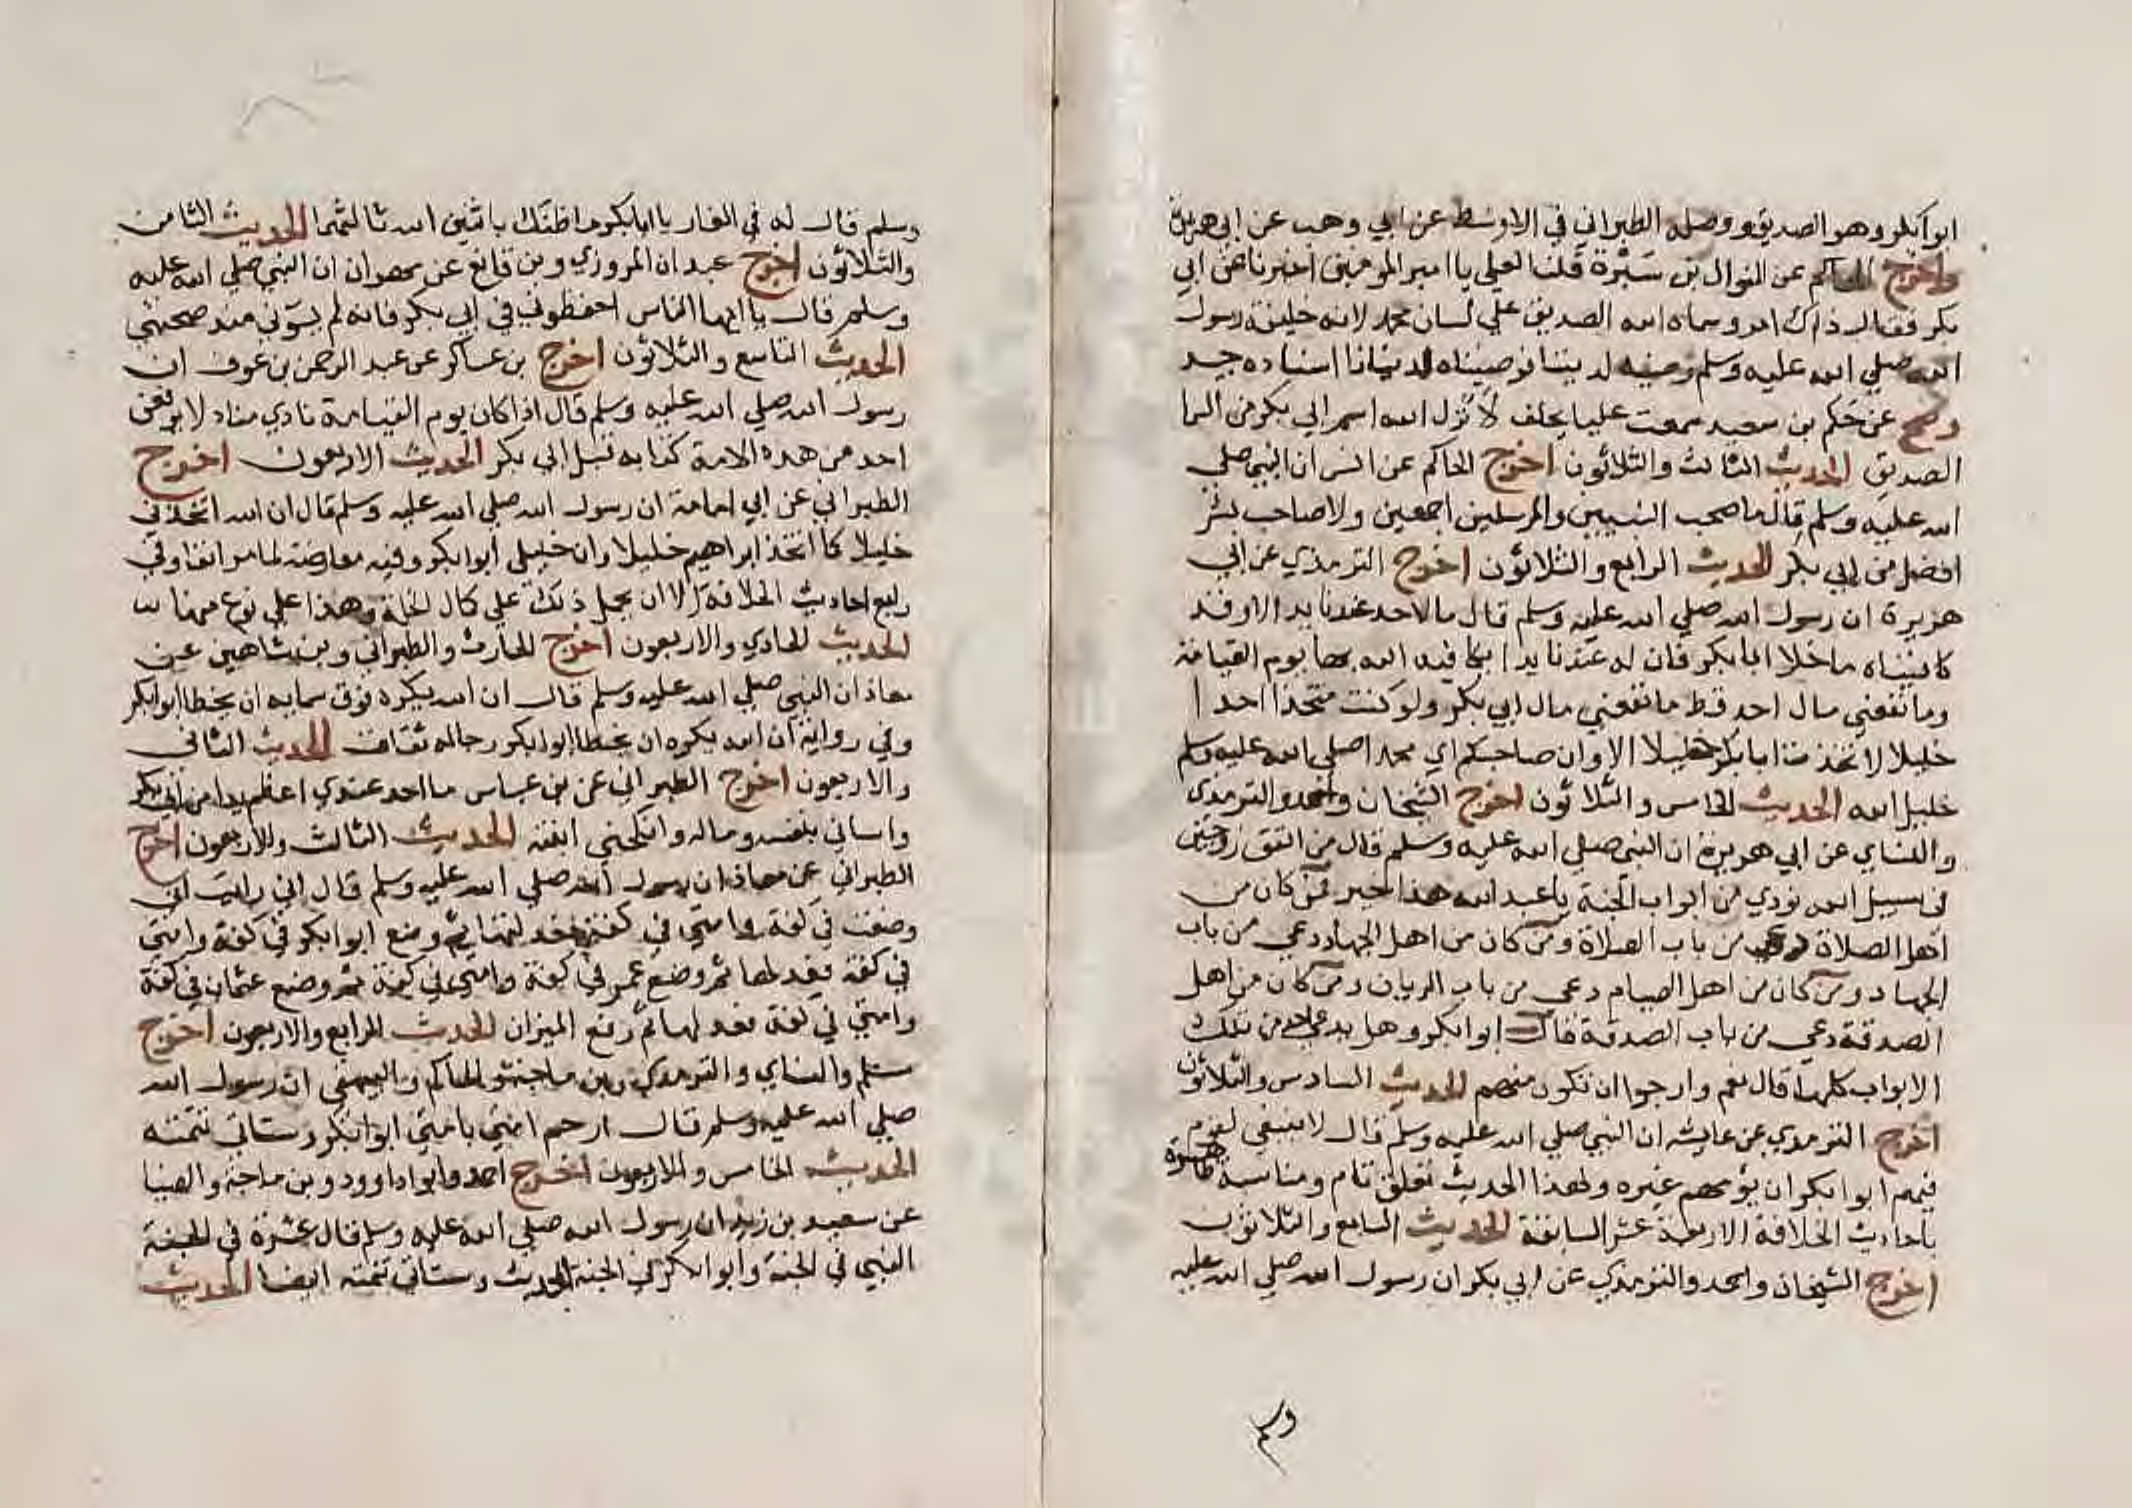 ابوا بكر وهو الصديق ووصله الطبراني في الاوسط عن ابي وهب عن ابي هريرة
واخرج الحاكم عن النزال بن سبرة قلنا لعلي يا امير المومنين اخبرنا عن ابي
بكر فقال ذاك امرو سماه الله الصديق علي لسان محمد لانه خليفة رسول
الله صلي الله عليه وسلم رضيه لديننا فرضيناه لدنيانا اسناده جيد
وصح عن حكم بن سعيد سمعت عليا يحلف لانزل الله اسم ابي بكر من السما
الصديق الحديث الثالث والثلاثون اخرج الحاكم عن انس ان النبي صلي
الله عليه وسلم قال ما صحب النبيين والمرسلين اجمعين ولا صاحب
افضل من ابي بكر الحديث الرابع والثلاثون اخرج الترمذي عن ابي
هريرة ان رسول الله صلي الله عليه وسلم قال ما لاحد عندنا يد الا وقد
كافيناه ما خلا ابا بكر فان له عندنا يدا يكافيه الله بها يوم القيامة
وما نفعني مال احد قط ما نفعني مال ابي بكر ولو كنت متخذا احدا
خليلا لاتخذت ابا بكر خليلا الا وان صاحبكم اي محمدا صلي الله عليه وسلم
خليل الله الحديث الخامس والثلاثون اخرج الشيخان واحمد والترمذي
والنساي عن ابي هريرة ان النبي صلي الله عليه وسلم قال من انفق زوجين
في سبيل الله نودي من ابواب الجنة يا عبد الله هذا خير فمن كان من
اهل الصلاة دعي من باب الصلاة ومن كان من اهل الجهاد دعي من باب
الجهاد ومن كان من اهل الصيام دعي من باب الريان ومن كان من اهل
الصدقة دعي من باب الصدقة قال ابوا بكر وهل يدعي احد من تلك
الابواب كلها قال نعم وارجوا ان تكون منهم الحديث السادس والثلاثون
اخرج الترمذي عن عايشه ان النبي صلي الله عليه وسلم قال لا ينبغي لقوم
فيهم ابوا بكر ان يؤمهم غيره ولهذا الحديث تعلق تام ومناسبة ظاهرة
باحاديث الخلافة الاربعة عشر السابقة الحديث السابع والثلاثون
اخرج الشيخان واحمد والترمذي عن ابي بكر ان رسول الله صلي الله عليه
وسلم
وسلم قال له في الغار يا ابا بكر ما ظنك باثنين الله ثالثهما الحديث الثامن
والثلاثون اخرج عبدان المروزي وبن قانع عن ان النبي صلي الله عليه
وسلم قال يا ايها الناس احفظوني في ابي بكر فانه لم يسؤني منذ صحبني
الحديث التاسع والثلاثون اخرج بن عساكر عن عبد الرحمن بن عوف ان
رسول الله صلي الله عليه وسلم قال اذا كان يوم القيامة نادي مناد لا يرفعن
احد من هذه الامة كتابه قبل ابي بكر الحديث الاربعون اخرج
الطبراني عن ابي امامة ان رسول الله صلي الله عليه وسلم قال ان الله اتخذني
خليلا كما اتخذ ابراهيم خليلا وان خليلي ابوا بكر وفيه معارضة لما مر انفا وفي
رابع احاديث الخلافة الا ان يحمل ذلك علي كمال الخلة وهذا علي نوع منها
الحديث الحادي والاربعون اخرج الحارث والطبراني وبن شاهين عن
معاذ ان النبي صلي الله عليه وسلم قال ان الله يكره فوق سمايه ان يخطا ابوا بكر
وفي رواية ان الله يكره ان يخطا ابوا بكر رجاله ثقات الحديث الثاني
والاربعون اخرج الطبراني عن بن عباس ما احد عندي اعظم يدا من ابي بكر
واساني بنفسه وماله وانكحني ابنته الحديث الثالث والاربعون اخرج
الطبراني عن معاذ ان رسول الله صلي الله عليه وسلم قال اني رايت اني
وضعت في كفة وامتي في كفة فعدلتها ثم وضع ابوا بكر في كفة وامتي
في كفة فعدلها ثم وضع عمر في كفة وامتي في كفة ثم وضع عثمان في كفة
وامتي في كفة فعدلها ثم رفع الميزان الحديث الرابع والاربعون اخرج
مسلم والنساي والترمذي وبن ماجة والحاكم والبيهقي ان رسول الله
صلي الله عليه وسلم قال ارحم امتي بامتي ابوا بكر وستاتي تتمته
الحديث الخامس والاربعون اخرج احمد وابوا داوود وبن ماجة والضيا
عن سعيد بن زيد ان رسول الله صلي الله عليه وسلم قال عشرة في الجنة
النبي في الجنة وابوا بكر في الجنة الحديث وستاتي تتمته ايضا الحديث